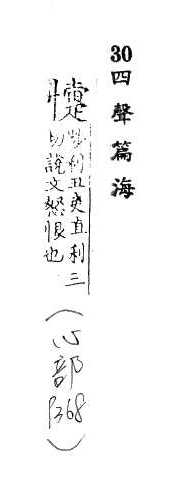 30四聲篇海
懥
陟利丑吏直利三
切說文怒恨也
(心部 P368)